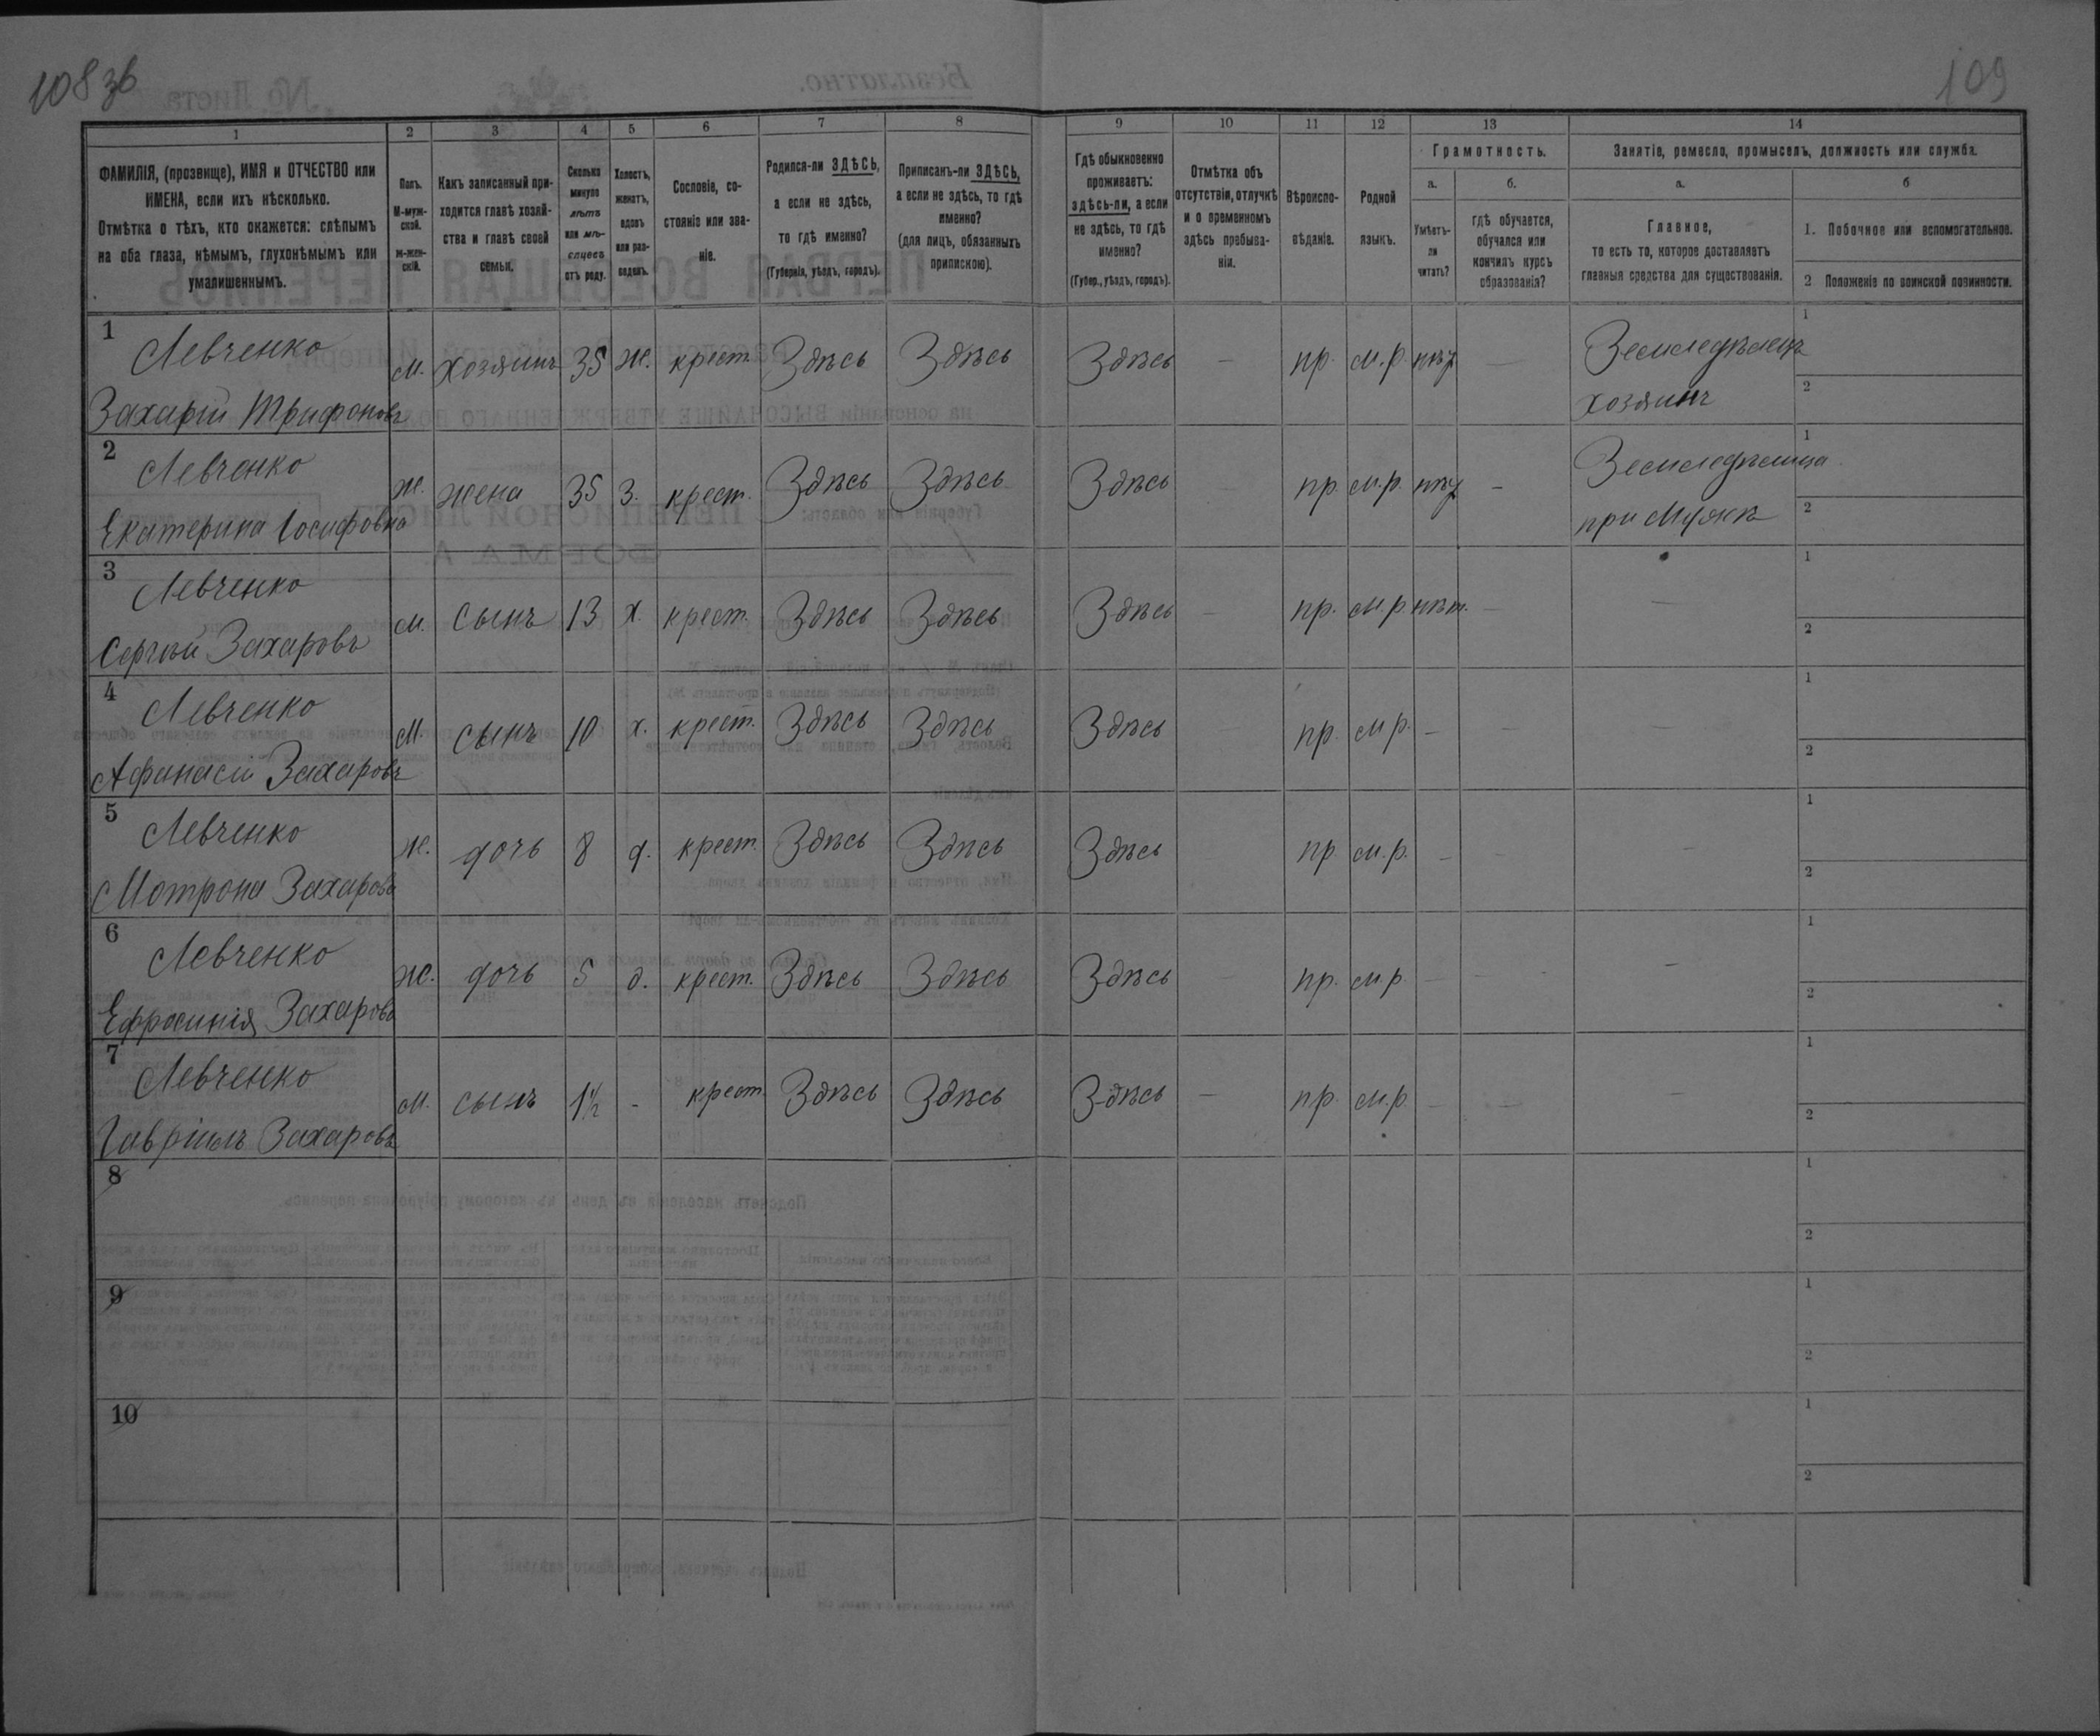 108 зв
109
1 2 3 4 5 6 7 8 9 10 11 12 13 14
ФАМИЛІЯ, (прозвище), ИМЯ и ОТЧЕСТВО или
ИМЕНА, если ихъ нѣсколько.
Отмѣтка о тѣхъ, кто окажется: слѣпымъ
на оба глаза, нѣмымъ, глухонѣмымъ или
умалишеннымъ.
Полъ.
М-муж-
ской.
ж-жен-
скій.
Какъ записанный при-
ходится главѣ хозяй-
ства и главѣ своей
семьи.
Сколько
минуло
лѣтъ
или мѣ-
сяцевъ
отъ роду.
Холостъ,
женатъ,
вдовъ
или раз-
веденъ.
Сословіе, со-
стояніе или зва-
ніе.
Родился-ли ЗДѢСЬ,
а если не здѣсь,
то гдѣ именно?
(Губернія, уѣздъ, городъ).
Приписанъ-ли ЗДѢСЬ,
а если не здѣсь, то гдѣ
именно?
(для лицъ, обязанныхъ
припискою).
Гдѣ обыкновенно
проживаетъ:
здѣсь-ли, а если
не здѣсь, то гдѣ
именно?
(Губер., уѣздъ, городъ).
Отмѣтка объ
отсутствіи, отлучкѣ
и о временномъ
здѣсь пребыва-
ніи.
Вѣроиспо-
вѣданіе.
Родной
языкъ.
Грамотность.
а.
Умѣетъ-
ли
читать?
б.
гдѣ обучается,
обучался или
кончилъ курсъ
образованія?
Занятіе, ремесло, промыселъ, должность или служба.
а.
Главное,
то есть то, которое доставляетъ
главныя средства для существованія.
б
1. Побочное или вспомогательное.
2 Положеніе по воинской повинности.
1 Левченко
Захарій Трифоновъ
м. хозяинъ 35 ж. крест. Здѣсь Здѣсь Здѣсь — пр. м.р. нѣт —
Земледѣлецъ
хозяинъ
1
2
2 Левченко
Екатерина Іосифовна
ж. жена 35 З. крест. Здѣсь Здѣсь Здѣсь пр. м.р. нѣт —
Земледѣлица
при Мужѣ
1
2
3 Левченко
Сергѣй Захаровъ
м. сынъ 13 х. крест. Здѣсь Здѣсь Здѣсь — пр. м.р. нѣт. — —
1
2
4 Левченко
Афанасій Захаровъ
М. сынъ 10 х. крест. Здѣсь Здѣсь Здѣсь пр. м.р. — — —
1
2
5 Левченко
Мотрона Захарова
ж. дочь 8 д. крест. Здѣсь Здѣсь Здѣсь пр. м.р. — — —
1
2
6 Левченко
Ефросинія Захарова
ж. дочь 5 д. крест. Здѣсь Здѣсь Здѣсь пр. м.р. — — —
1
2
7 Левченко
Гавріилъ Захаровъ
м. сынъ 1½ - крест. Здѣсь Здѣсь Здѣсь — пр. м.р. — — —
1
2
8
1
2
9
1
2
10
1
2